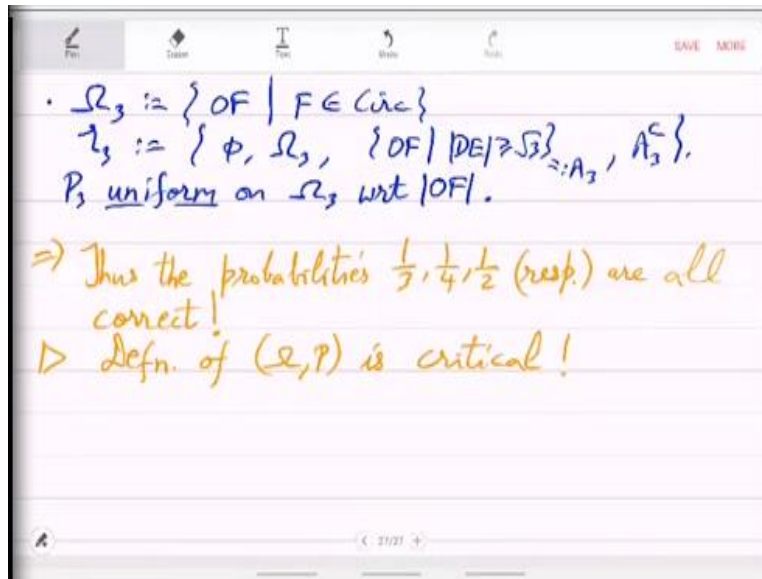 Pen Eraser Text Undo Redo SAVE MORE
· Ω₃ := { OF | F ∈ Circ }
Σ₃ := { φ, Ω₃, { OF | |DE| ≥ √3 } =: A₃ , A₃ᶜ }.
P₃ uniform on Ω₃ wrt |OF|.
=> Thus the probabilities 1/3, 1/4, 1/2 (resp.) are all
correct!
▷ Defn. of (Ω, P) is critical!
27/27